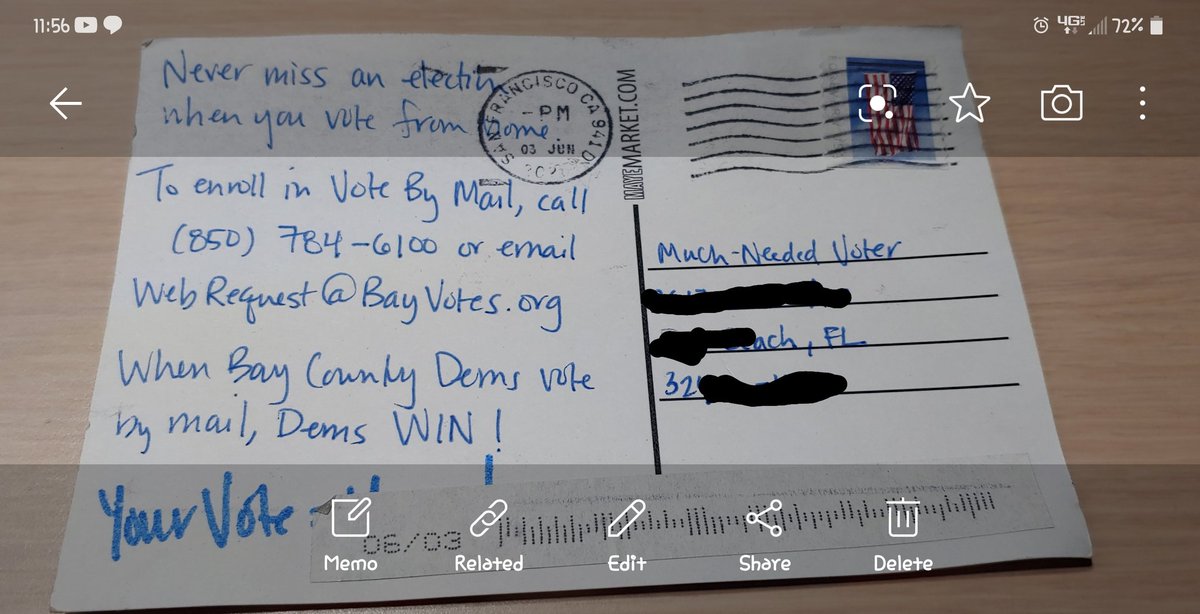 11:56
4G
72%
Never miss an election
when you vote from home.
To enroll in Vote By Mail, call
(850) 784-6100 or email
WebRequest@BayVotes.org
When Bay County Dems vote
by mail, Dems WIN!
Your Vote
SAN FRANCISCO CA 941
- PM
03 JUN
MAYEMARKET.COM
Much-Needed Voter
each, FL
32
06/03
Memo
Related
Edit
Share
Delete